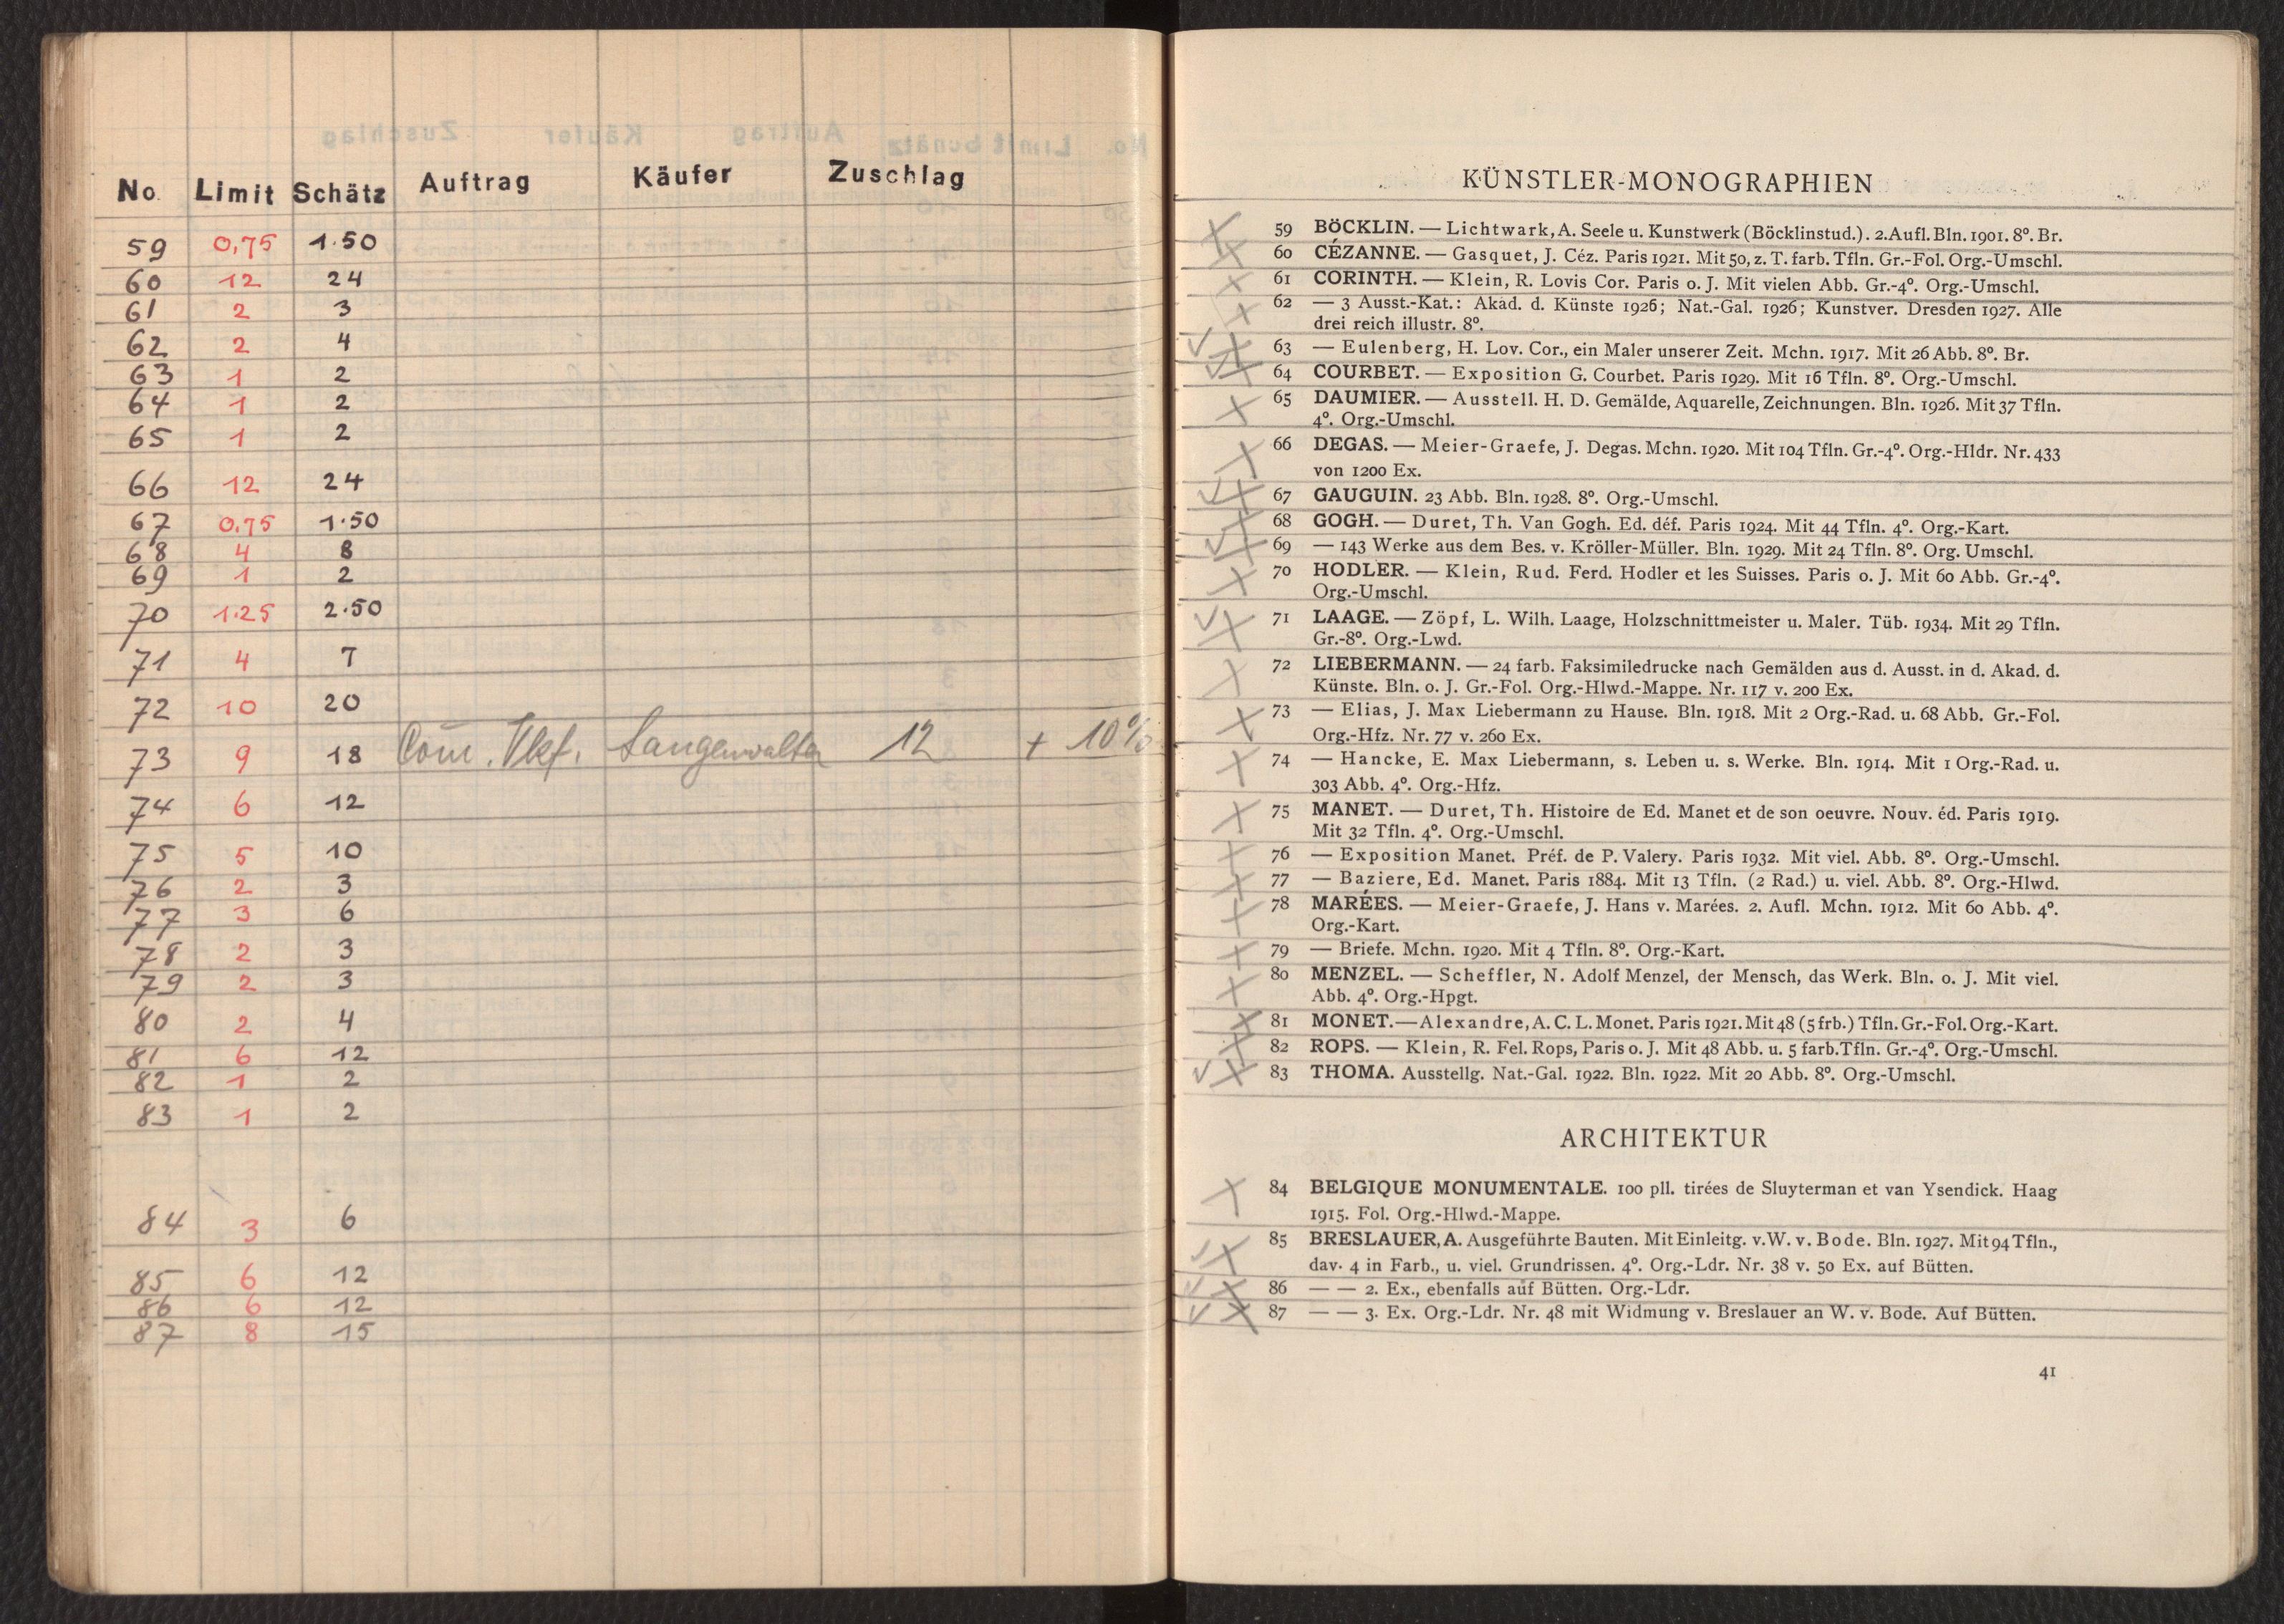 No. Limit Schätz Auftrag Käufer Zuschlag
59 0,75 1.50
60 12 24
61 2 3
62 2 4
63 1 2
64 1 2
65 1 2
66 12 24
67 0.75 1.50
68 4 8
69 1 2
70 1.25 2.50
71 4 7
72 10 20
73 9 18 Com. Vkf. Langenwalter 12 + 10%
74 6 12
75 5 10
76 2 3
77 3 6
78 2 3
79 2 3
80 2 4
81 6 12
82 1 2
83 1 2
84 3 6
85 6 12
86 6 12
87 8 15
KÜNSTLER-MONOGRAPHIEN
59 BÖCKLIN. — Lichtwark, A. Seele u. Kunstwerk (Böcklinstud.). 2. Aufl. Bln. 1901. 8°. Br.
60 CÉZANNE. — Gasquet, J. Céz. Paris 1921. Mit 50, z. T. farb. Tfln. Gr.-Fol. Org.-Umschl.
61 CORINTH. — Klein, R. Lovis Cor. Paris o. J. Mit vielen Abb. Gr.-4°. Org.-Umschl.
62 — 3 Ausst.-Kat.: Akad. d. Künste 1926; Nat.-Gal. 1926; Kunstver. Dresden 1927. Alle
drei reich illustr. 8°.
63 — Eulenberg, H. Lov. Cor., ein Maler unserer Zeit. Mchn. 1917. Mit 26 Abb. 8°. Br.
64 COURBET. — Exposition G. Courbet. Paris 1929. Mit 16 Tfln. 8°. Org.-Umschl.
65 DAUMIER. — Ausstell. H. D. Gemälde, Aquarelle, Zeichnungen. Bln. 1926. Mit 37 Tfln.
4°. Org.-Umschl.
66 DEGAS. — Meier-Graefe, J. Degas. Mchn. 1920. Mit 104 Tfln. Gr.-4°. Org.-Hldr. Nr. 433
von 1200 Ex.
67 GAUGUIN. 23 Abb. Bln. 1928. 8°. Org.-Umschl.
68 GOGH. — Duret, Th. Van Gogh. Ed. déf. Paris 1924. Mit 44 Tfln. 4°. Org.-Kart.
69 — 143 Werke aus dem Bes. v. Kröller-Müller. Bln. 1929. Mit 24 Tfln. 8°. Org. Umschl.
70 HODLER. — Klein, Rud. Ferd. Hodler et les Suisses. Paris o. J. Mit 60 Abb. Gr.-4°.
Org.-Umschl.
71 LAAGE. — Zöpf, L. Wilh. Laage, Holzschnittmeister u. Maler. Tüb. 1934. Mit 29 Tfln.
Gr.-8°. Org.-Lwd.
72 LIEBERMANN. — 24 farb. Faksimiledrucke nach Gemälden aus d. Ausst. in d. Akad. d.
Künste. Bln. o. J. Gr.-Fol. Org.-Hlwd.-Mappe. Nr. 117 v. 200 Ex.
73 — Elias, J. Max Liebermann zu Hause. Bln. 1918. Mit 2 Org.-Rad. u. 68 Abb. Gr.-Fol.
Org.-Hfz. Nr. 77 v. 260 Ex.
74 — Hancke, E. Max Liebermann, s. Leben u. s. Werke. Bln. 1914. Mit 1 Org.-Rad. u.
303 Abb. 4°. Org.-Hfz.
75 MANET. — Duret, Th. Histoire de Ed. Manet et de son oeuvre. Nouv. éd. Paris 1919.
Mit 32 Tfln. 4°. Org.-Umschl.
76 — Exposition Manet. Préf. de P. Valery. Paris 1932. Mit viel. Abb. 8°. Org.-Umschl.
77 — Baziere, Ed. Manet. Paris 1884. Mit 13 Tfln. (2 Rad.) u. viel. Abb. 8°. Org.-Hlwd.
78 MARÉES. — Meier-Graefe, J. Hans v. Marées. 2. Aufl. Mchn. 1912. Mit 60 Abb. 4°.
Org.-Kart.
79 — Briefe. Mchn. 1920. Mit 4 Tfln. 8°. Org.-Kart.
80 MENZEL. — Scheffler, N. Adolf Menzel, der Mensch, das Werk. Bln. o. J. Mit viel.
Abb. 4°. Org.-Hpgt.
81 MONET. — Alexandre, A. C. L. Monet. Paris 1921. Mit 48 (5 frb.) Tfln. Gr.-Fol. Org.-Kart.
82 ROPS. — Klein, R. Fel. Rops, Paris o. J. Mit 48 Abb. u. 5 farb. Tfln. Gr.-4°. Org.-Umschl.
83 THOMA. Ausstellg. Nat.-Gal. 1922. Bln. 1922. Mit 20 Abb. 8°. Org.-Umschl.
ARCHITEKTUR
84 BELGIQUE MONUMENTALE. 100 pll. tirées de Sluyterman et van Ysendick. Haag
1915. Fol. Org.-Hlwd.-Mappe.
85 BRESLAUER, A. Ausgeführte Bauten. Mit Einleitg. v. W. v. Bode. Bln. 1927. Mit 94 Tfln.,
dav. 4 in Farb., u. viel. Grundrissen. 4°. Org.-Ldr. Nr. 38 v. 50 Ex. auf Bütten.
86 — — 2. Ex., ebenfalls auf Bütten. Org.-Ldr.
87 — — 3. Ex. Org.-Ldr. Nr. 48 mit Widmung v. Breslauer an W. v. Bode. Auf Bütten.
41